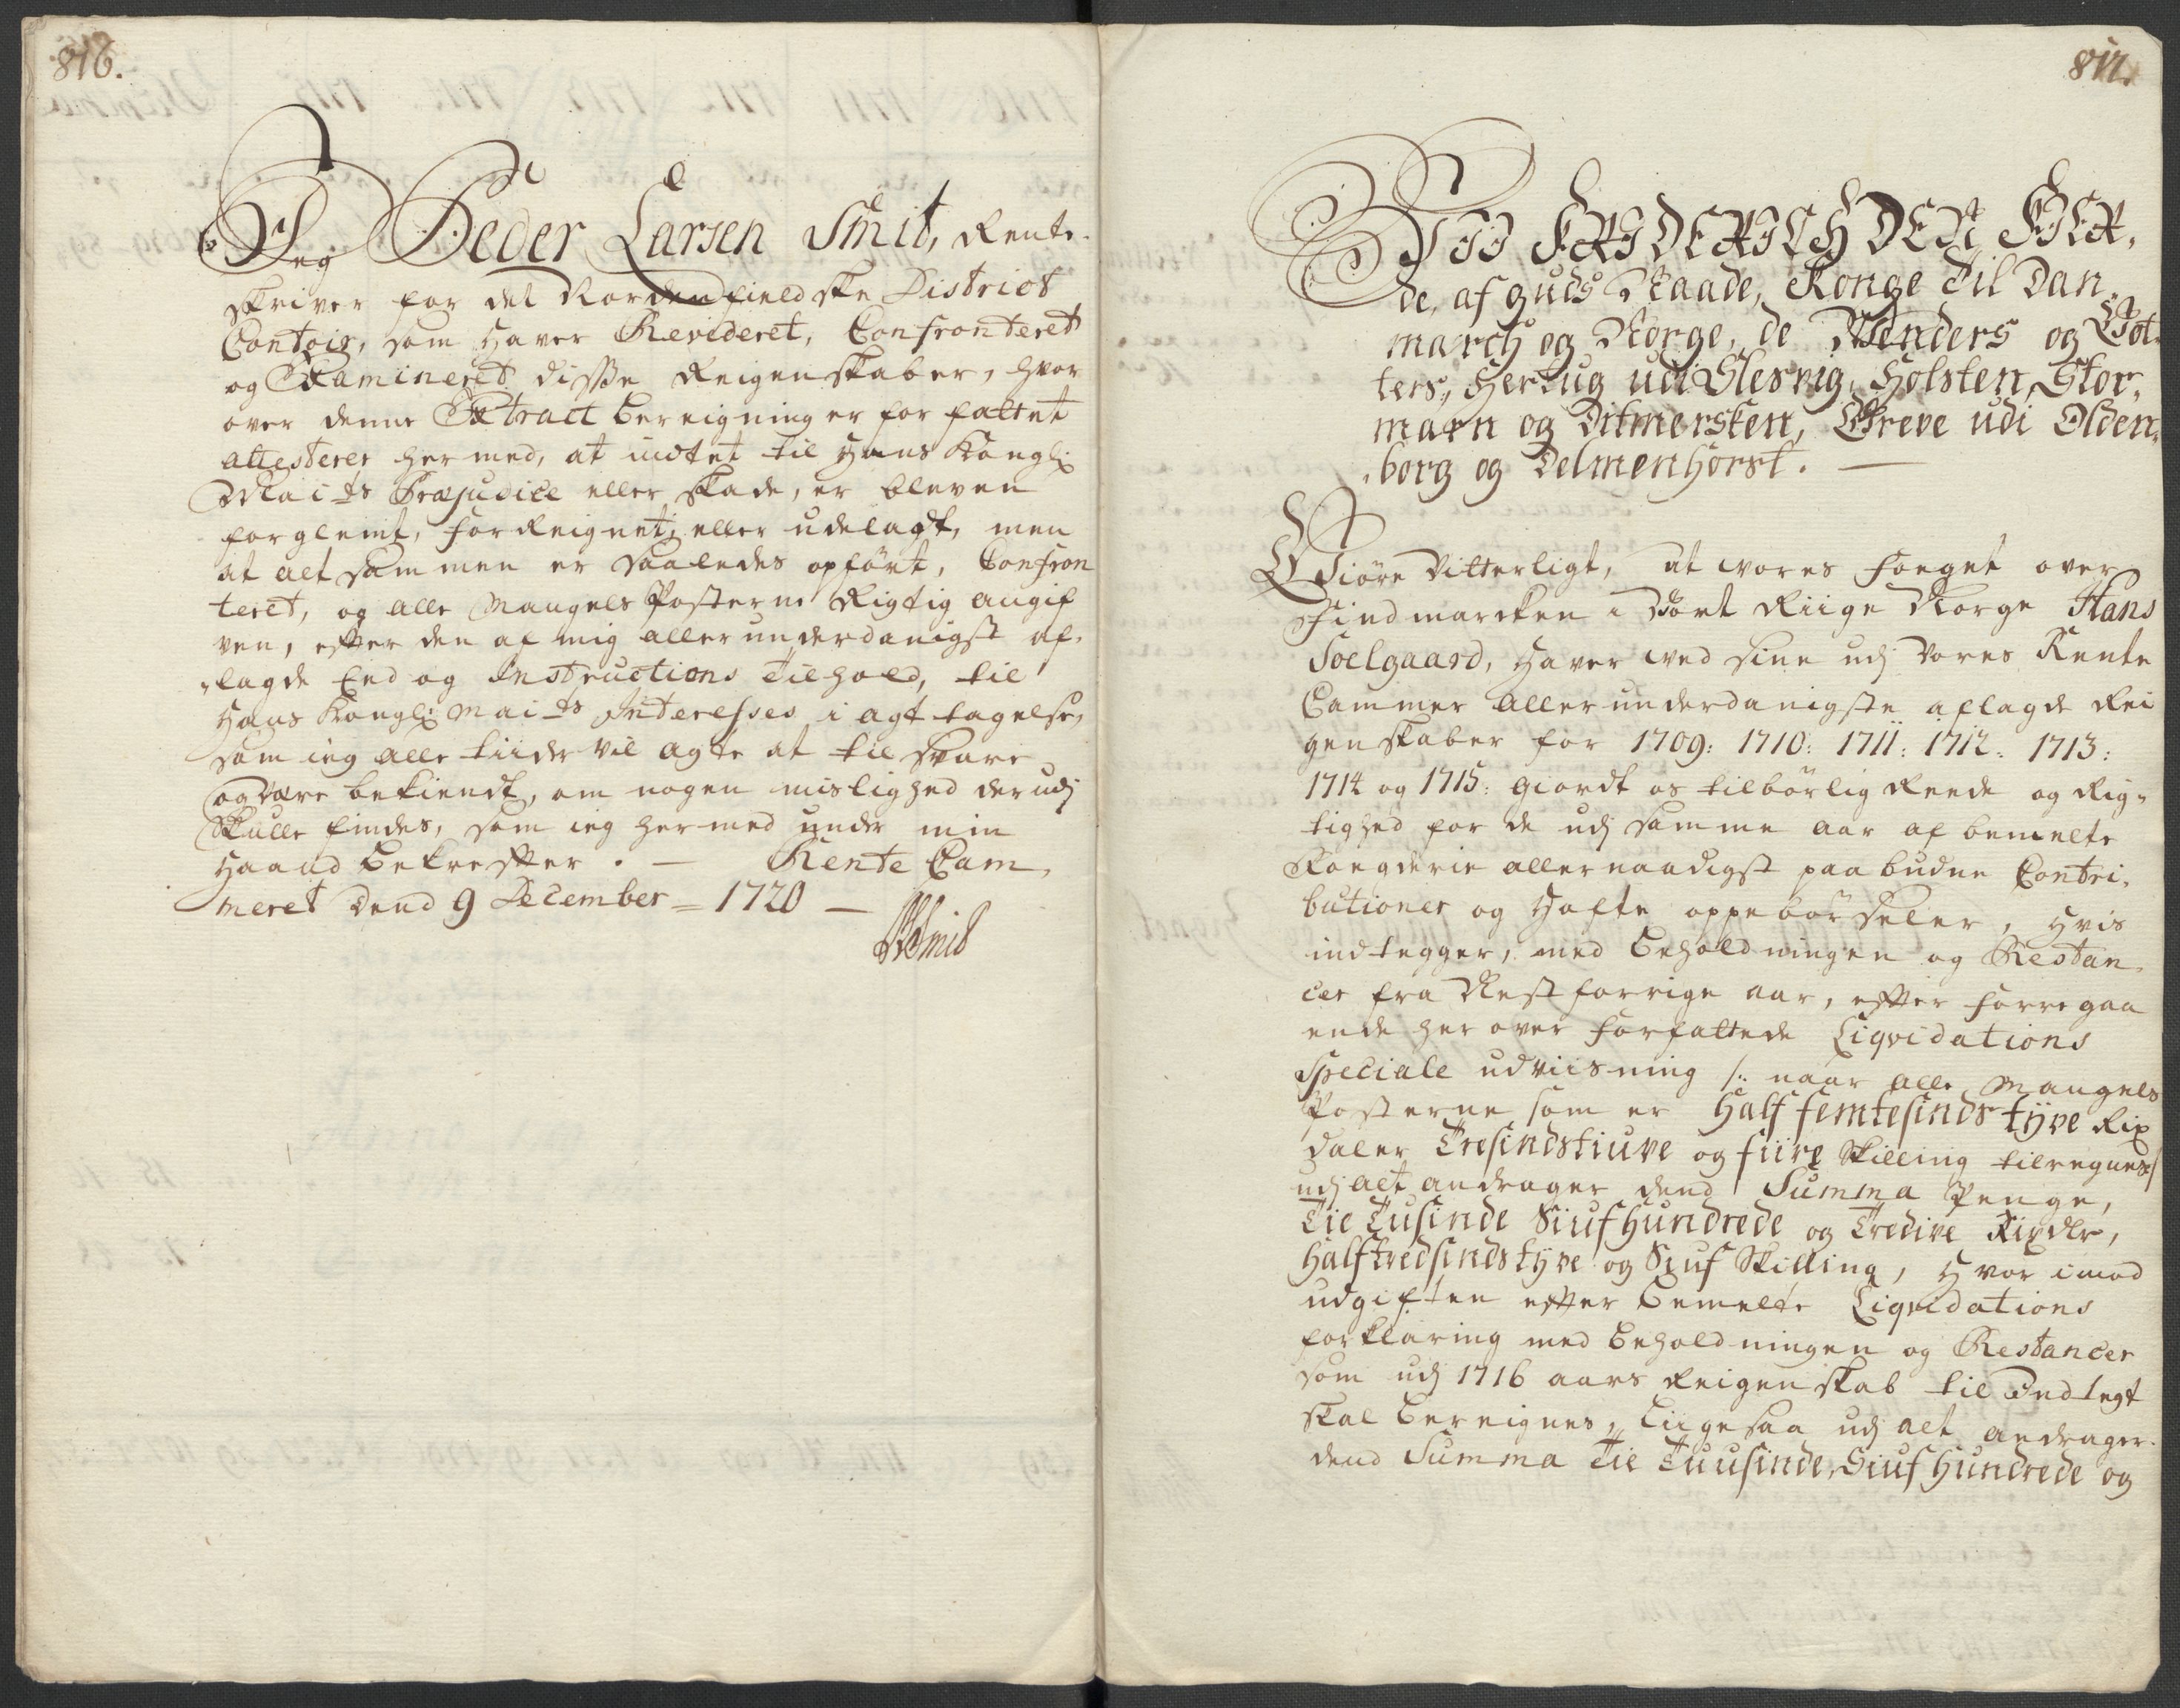 816.
Jeg Peder Larsen Smit, Rente-
skriver for det Nordenfieldske District
Contoir, som haver Revideret, Confronteret
og Examineret disse Reigenskaber, hvor
over denne Extract bereigning er forfattet
attesterer hermed, at intet til Hans Kongl:
Mai-ts Præjudice eller skade, er bleven
forglemt, for Reignet, eller udelagt, men
at alt sammen er saaledes opført, Confron
teret, og alle Mangels Posterne Rigtig angif
ven, efter den af mig allerunderdanigst af-
lagde Eed og Instructions Tilhold, til
Hans Kongl: Mai-ts Interesses i agt tagelse,
som ieg alle tiider vil agte at til svare
og være bekiendt, om nogen mislighed der udj
skulle findes, som ieg hermed under min
Haand bekreffter. — Rente Cam-
meret Dend 9 December = 1720 —
PLSmit
817.
VII FRIDERICH DEN FIER-
de, af Guds Naade, Konge til Dan-
march og Norge, de Wenders og Got-
ters, Hertug udi Slesvig, Holsten, Stor-
marn og Ditmersken, Greve udi Olden-
borg og Delmenhorst. —
Giöre Vitterligt, at wores Foeget over
Findmarcken i Vort Riige Norge Hans
Soelgaard, haver wed sine udj Vores Rente
Cammer allerunderdanigste aflagde Rei
genskaber for 1709: 1710: 1711: 1712: 1713:
1714 og 1715: Giordt os tilbörlig Reede og Rig-
tighed for de udj samme aar af bemelte
Foegderie allernaadigst paabudne Contri-
butioner og Hafte oppebörseler, Hvis
indtegger, med beholdningen og Restan-
cer fra Nest forrige aar, effter forregaa
ende her over forfattede Liqvidations
Speciale udviisning /: naar alle Mangels
Posterne som er Half femtesinds tyve Rix
daler Tresindstiuve og fiire Skilling tilregnes:/
udj alt andrager dend Summa Penge,
Tie Tusinde Siufhundrede og Tredive Rixdlr,
Halftredsinds tyve og Siuf Skilling, Hvor imod
udgiften effter bemelte Liqvidations
forklaring med beholdningen og Restancer
som udj 1716 aars Reigenskab til Indtegt
skal bereignes, liigesaa udj alt andrager
dend Summa Tie Tuusinde, Siuf Hundrede og